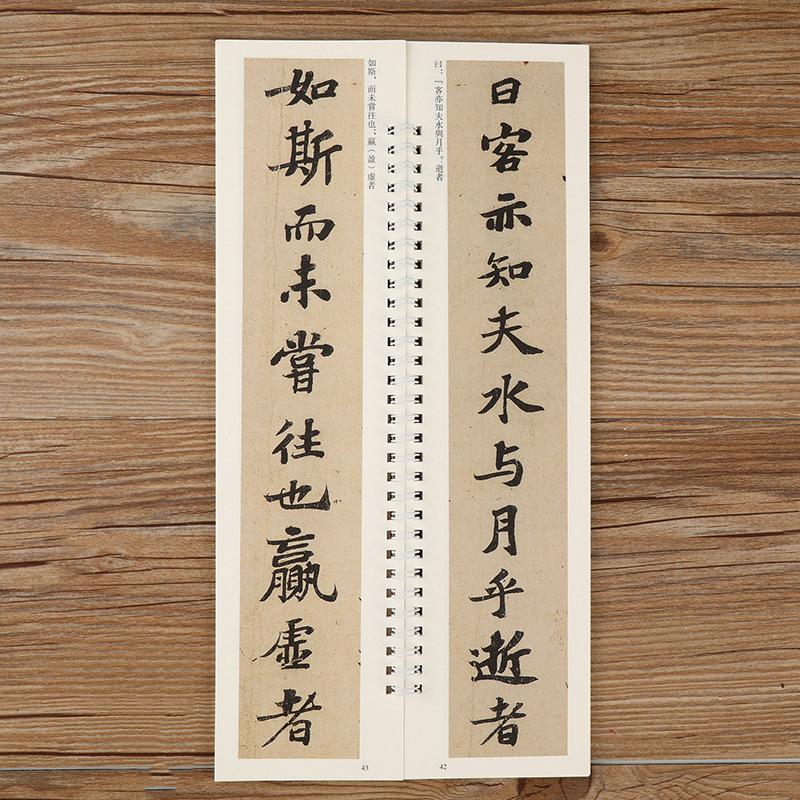 曰：「客亦知夫水與月乎？逝者
曰客亦知夫水与月乎逝者
42
如斯，而未嘗往也；贏（盈）虛者
如斯而未嘗往也贏虛者
43